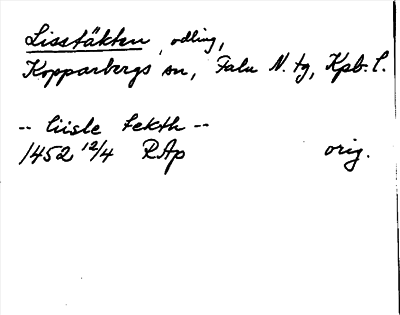 Lisstäkten, odling,
Kopparbergs sn, Falu N. tg, Kpb. l.
-- liisle tekth --
1452 12/4 RAp orig.